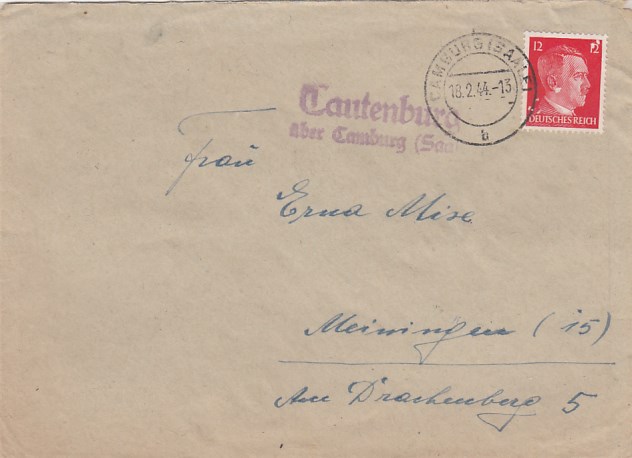 CAMBURG (SAALE)
18.2.44.-13
b
12 12
DEUTSCHES REICH
Tautenburg
über Camburg (Saal
Frau
Erna Mise
Meiningen (15)
Am Drachenberg 5